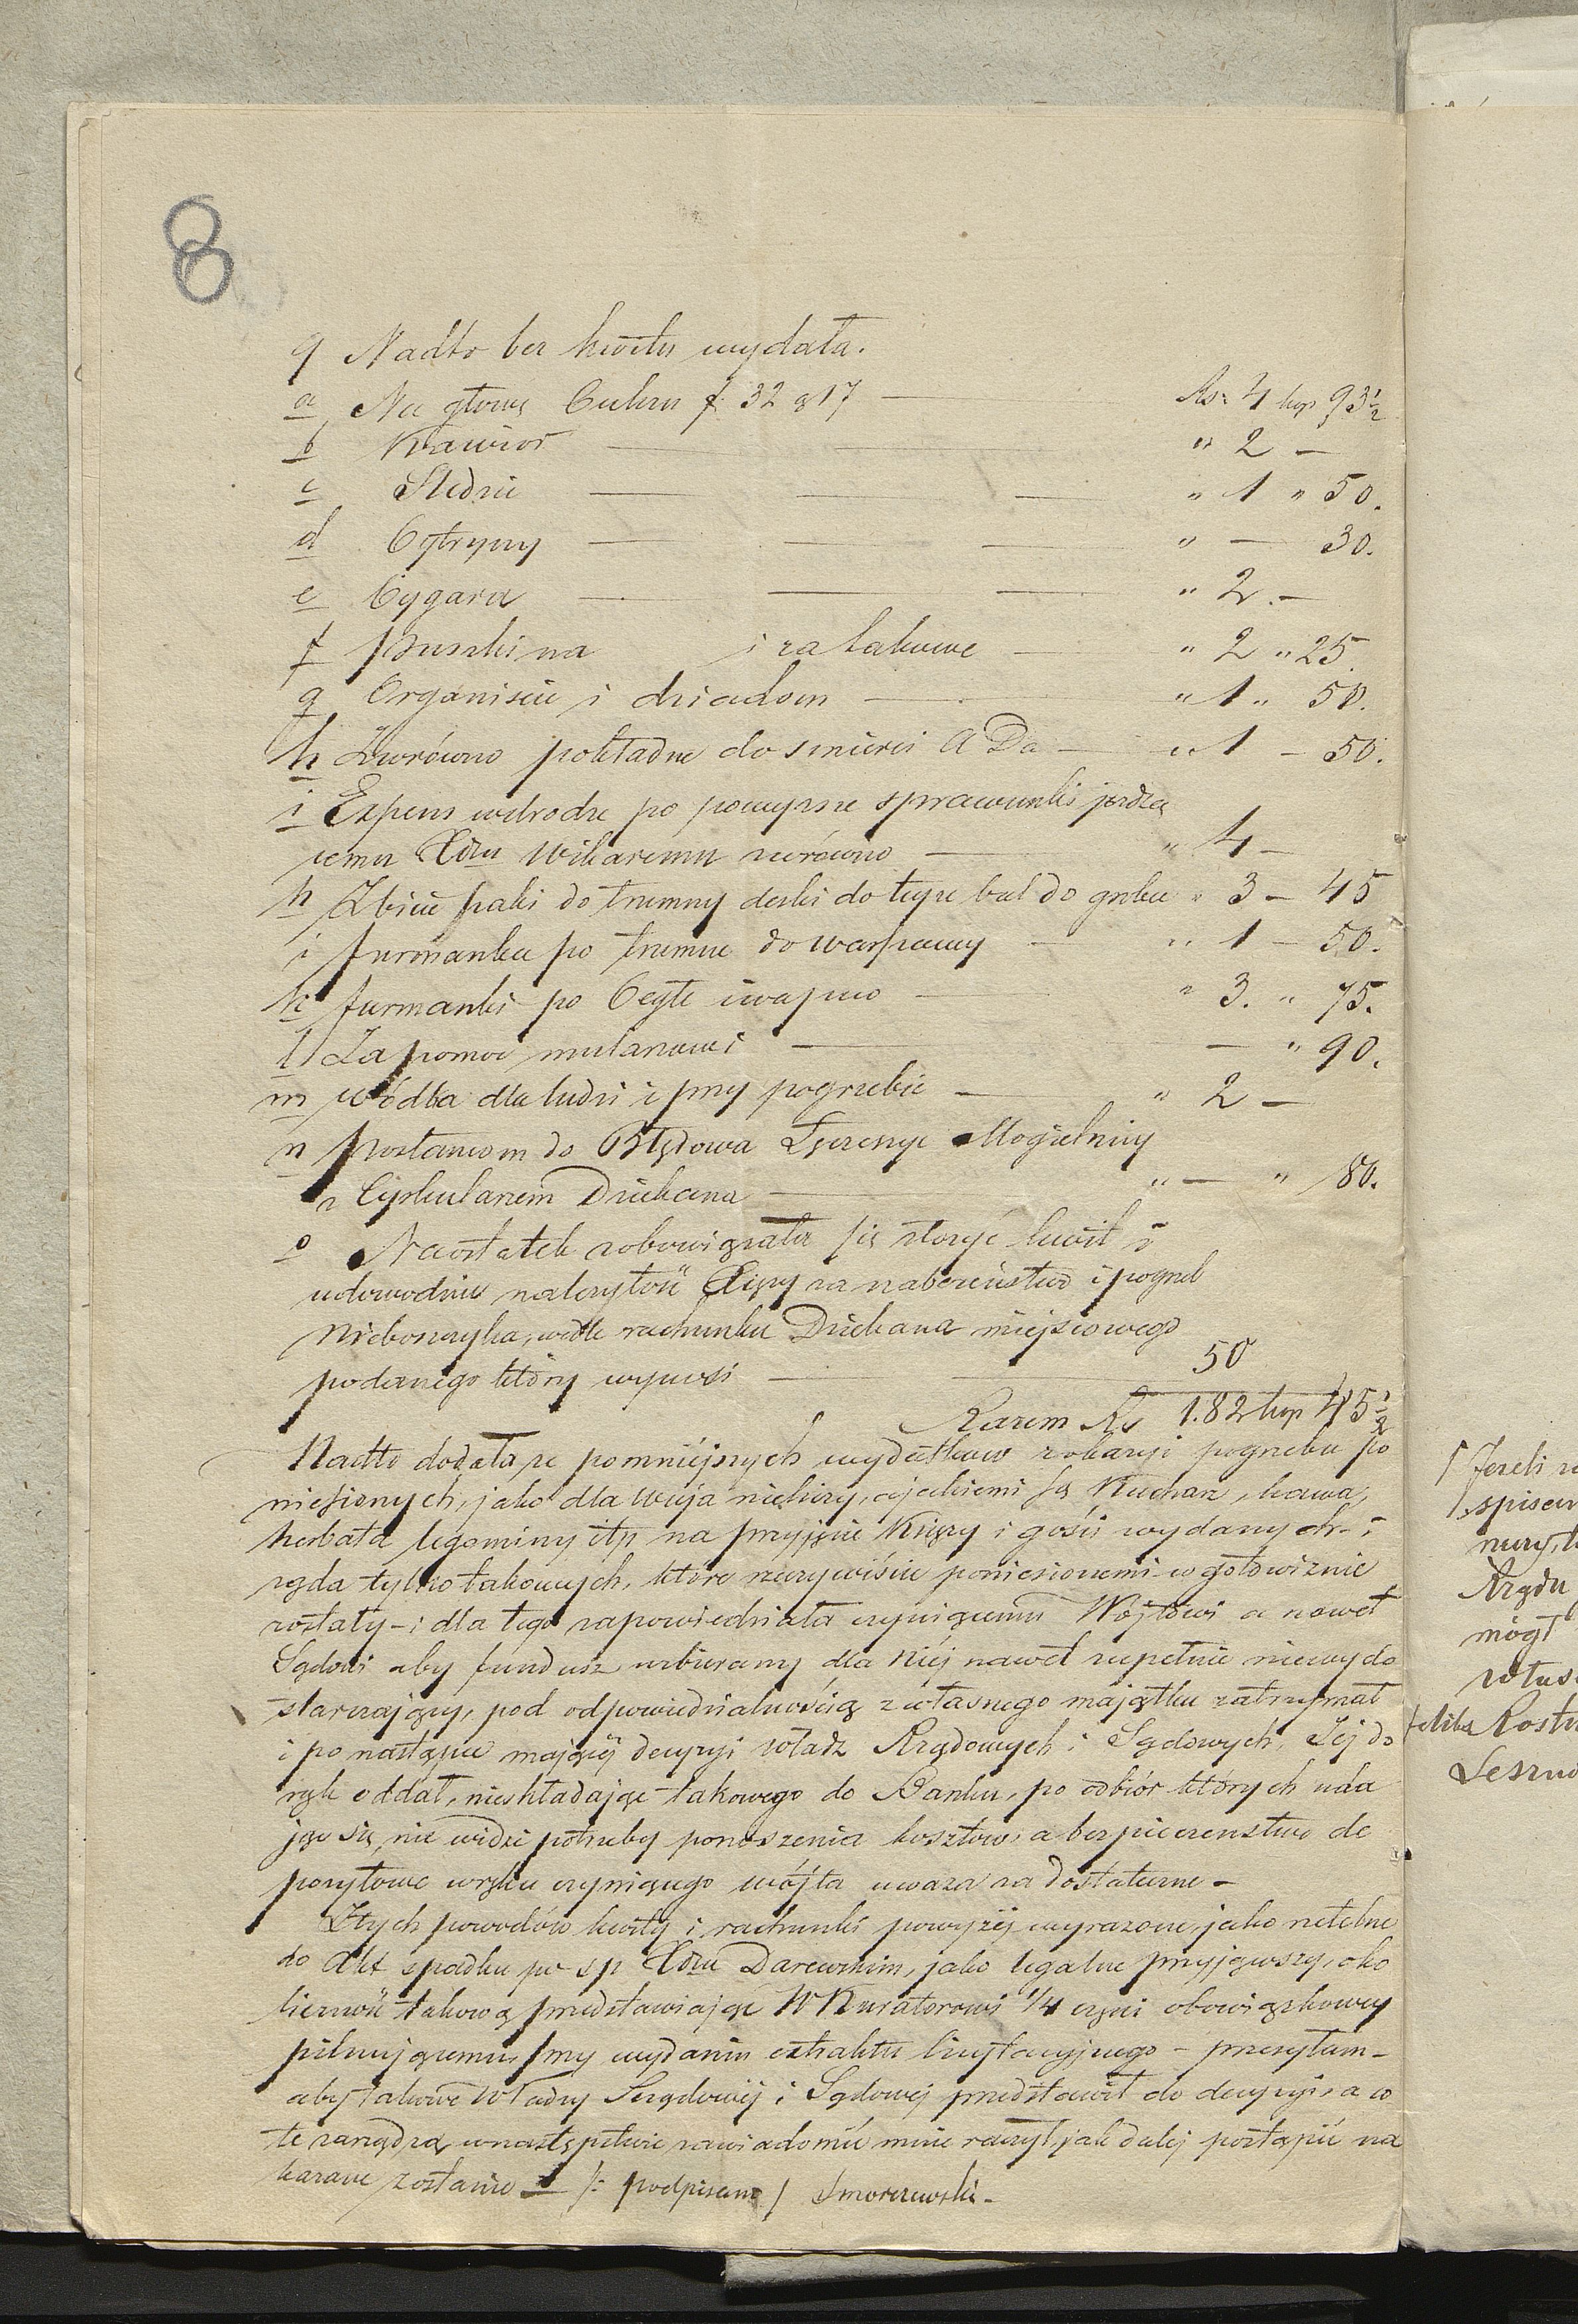 8
9 Nadto bez kwitu wydała.
a Na głowę Cukru f. 32 g 17 — Rs: 4 kop 93½
b Kawior — " 2 —
c Sledzie — " 1 " 50.
d Cytryny — " — 30.
e Cygara — " 2. —
f Puszki na i za takowe — " 2 " 25.
g Organiscie i dziadom — " 1 " 50.
h Zwrócono pokładne do smierci A Da — " 1 — 50.
i Expens w drodze po powyzsze sprawunki jeżdżą
cemu Xdzu Wikaremu zwrócono — " 4 —
k Zbicie paki do trumny deski do teyże bal do grobu " 3 — 45
i furmanka po trumne do Warszawy — " 1 — 50.
k furmanki po Cegłe i wapno — " 3. " 75.
l Za pomoc mularzowi — — " 90.
m wódka dla ludzi i przy pogrzebie — " 2 —
n Posłańcom do Błędowa Mogielnicy
z Cyrkularzem Dziekana — " — " 80.
o Naostatek zobowiązała się złożyć kwit i
udowodnić należytość Xięży za nabożeństwo i pogrzeb
Nieboszczyka, wedle rachunku Dziekana miejscowego
podanego który wynosi — 50
Razem Rs 182 kop 45½
Nadto dodała że pomniejszych wydatków z okazyi pogrzebu po
niesionych, jako dla Wuja nieliczy, a jakiemi są Kucharz, kawa,
herbata legominy itp na przyjęcie Księży i gości wydanych — i
żąda tylko takowych, które rzeczywiście poniesionemi w gotowiznie
zostały — i dla tego zapowiedziała czyniącemu Wójtowi a nawet
Sądowi aby fundusz uzbierany dla Niéj nawet zupełnie niewydo
starczający, pod odpowiedzialnością z własnego majątku zatrzymał
i po nastąpić mającej decyzyi Władz Rządowych i Sądowych, Jéj do
rąk oddał, nieskładając takowego do Banku, po odbiór których uda
jąc się, nie widzi potrzeby ponoszenia kosztów, a bezpieczenstwo de
pozytowe w ręku czyniącego wójta uważa za dostateczne —
Z tych powodów kwity i rachunki powyżéj wyrażone, jako
do Akt spadku po sp Xdzu Darewskim, jako legalne przyjąwszy, oko
liczność takową przedstawiając W Kuratorowi ¼ części obowiązkowey
pilnującemu, przy wydaniu extraktu licytacyjnego — przesyłam —
aby takowe Władzy Rządowéj i Sądowej przedstawił do decyzyi, a co
te zarządzą, w następstwie zawiadomić mnie raczył, jak dalej postąpić na
kazane zostanie — /: podpisano / Smorczewski —
Jezeli
spisan
Rządu
mógł
Rostk